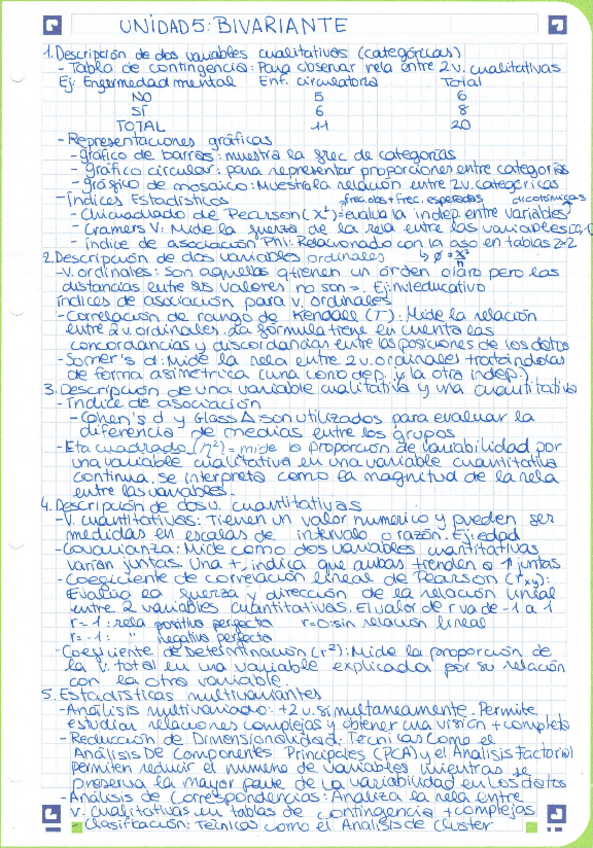 UNIDAD 5: BIVARIANTE
1. Descripción de dos variables cualitativas (categóricas)
- Tabla de contingencia: Para observar rela entre 2 v. cualitativas
Ej: Enfermedad mental Enf. circulatoria Total
NO 5 6
SÍ 6 8
TOTAL 11 20
- Representaciones gráficas
- gráfico de barras: muestra la frec de categorías
- gráfico circular: para representar proporciones entre categorías
- gráfico de mosaico: Muestra la relación entre 2 v. categóricas
- Índices Estadísticos frec. obs + frec. esperadas dicotómicas
- Chicuadrado de Pearson (X²) = evalua la indep. entre variables
- Cramers V: Mide la fuerza de la rela entre las variables
- indice de asociación Phi: Relacionado con la aso en tablas 2x2
2. Descripción de dos variables ordinales ↳ Ø = X²/n
- V. ordinales: son aquellas q tienen un orden claro pero las
distancias entre sus valores no son =. Ej: niv. educativo
índices de asociación para v. ordinales
- Correlación de rango de Kendall (T): Mide la relación
entre 2 v. ordinales. La fórmula tiene en cuenta las
concordancias y discordancias entre las posiciones de los datos
- Somer's d: Mide la rela entre 2 v. ordinales tratándolas
de forma asimétrica (una como dep. y la otra indep.)
3. Descripción de una variable cualitativa y una cuantitativa
- Indice de asociación
- Cohen's d y Glass Δ son utilizados para evaluar la
diferencia de medias entre los grupos
- Eta cuadrado (η²) = mide la proporción de variabilidad por
una variable cualitativa en una variable cuantitativa
continua. se interpreta como la magnitud de la rela
entre las variables.
4. Descripción de dos v. cuantitativas
- V. cuantitativas: Tienen un valor numerico y pueden ser
medidas en escalas de intervalo o razón. Ej: edad
- Covarianza: Mide como dos variables cuantitativas
varían juntas. Una +, indica que ambas tienden a ↑ juntas
- Coeficiente de correlación lineal de Pearson (rxy):
Evalúa la fuerza y dirección de la relación linial
entre 2 variables cuantitativas. El valor de r va de -1 a 1
r=1: rela positiva perfecta r=0: sin relación lineal
r=-1: " negativa perfecta
- Coeficiente de Determinación (r²): Mide la proporción de
la v. total en una variable explicada por su relación
con la otra variable.
5. Estadísticas multivariantes
- Análisis multivariado: +2 v. simultaneamente. Permite
estudiar relaciones complejas y obtener una visión + completa
- Reducción de Dimensionalidad: Técnicas como el
Análisis De Componentes Principales (PCA) y el Analisis factorial
permiten reducir el numero de variables mientras se
preserva la mayor parte de la variabilidad en los datos
- Análisis de Correspondencias: Analiza la rela entre
v. cualitativas en tablas de contingencia + complejas
- Clasificación: Técnicas como el Analisis de Cluster